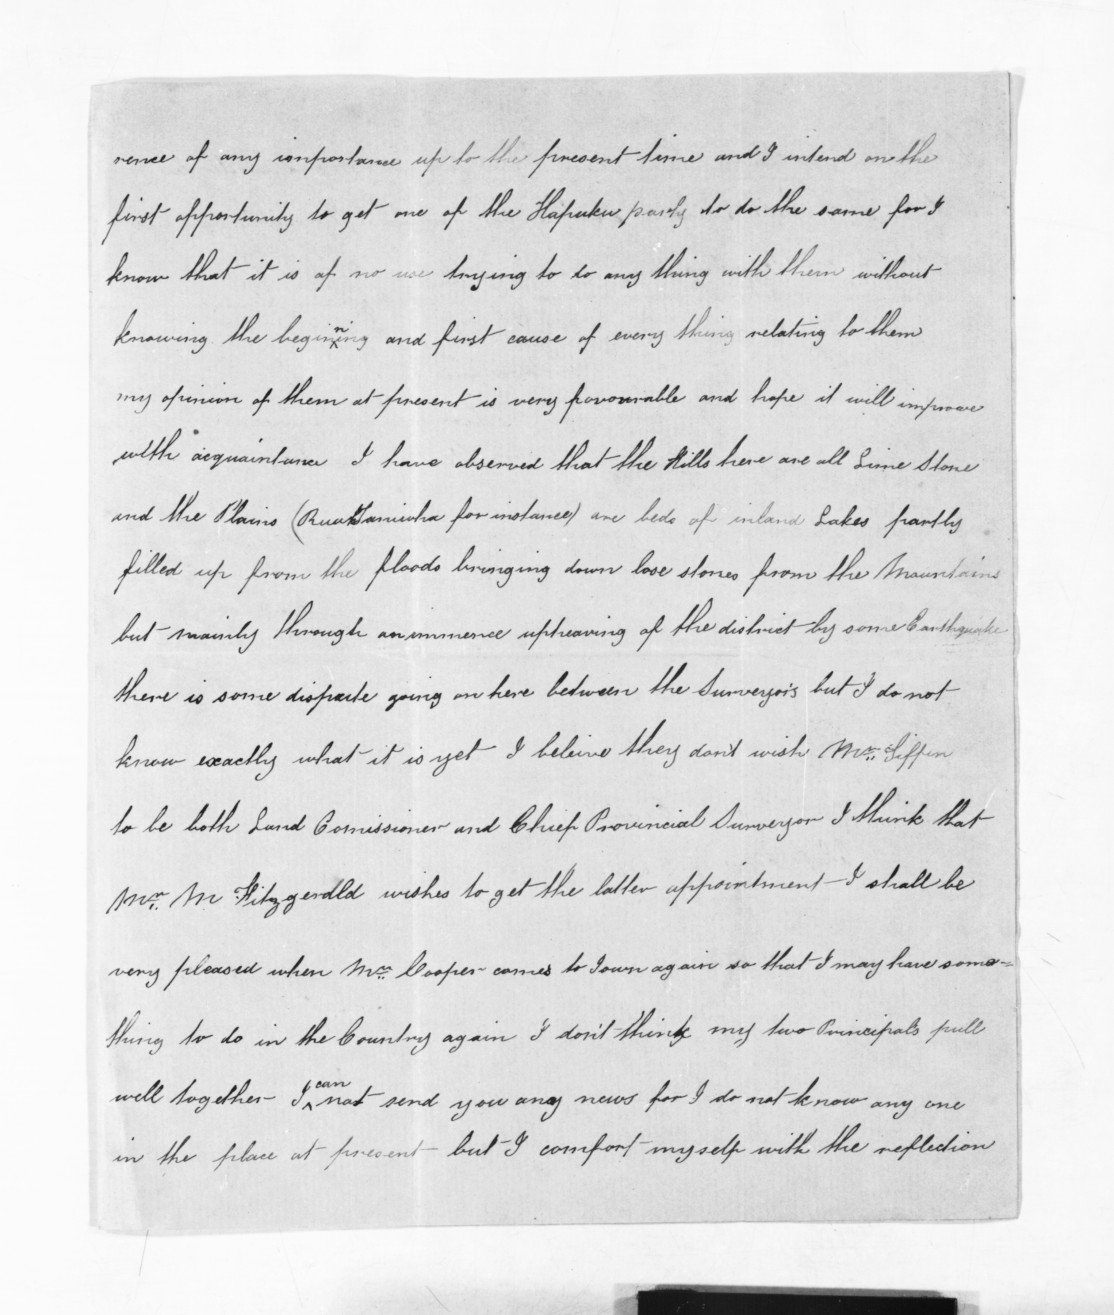 rence of any importance up to the present time and I intend on the
first opportunity to get one of the Hapuku party to do the same for I
know that it is of no use trying to do any thing with them without
knowing the beginning and first cause of every thing relating to them
my opinion of them at present is very favourable and hope it will improve
with acquaintance I have observed that the Hills here are all Lime Stone
and the Plains (RuaTaniwha for instance) are beds of inland Lakes partly
filled up from the floods bringing down lose stones from the Mountains
but mainly through an immence upheaving of the district by some Earthquake
there is some dispute going on here between the Surveyors but I do not
know exactly what it is yet I beleive they dont wish Mr. Tiffen
to be both Land Comissioner and Chief Provincial Surveyor I think that
Mr. M Fitzgerdld wishes to get the latter appointment I shall be
very pleased when Mr. Cooper comes to Town again so that I may have some=
thing to do in the Country again I dont think my two Principals pull
well together I can not send you any news for I do not know any one
in the place at present but I comfort myself with the reflection